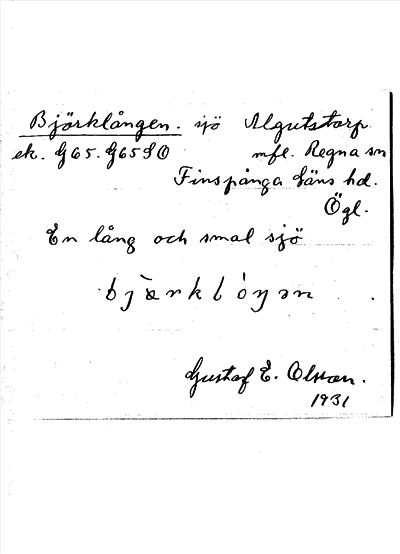 Björklången. sjö Algutstorp
ek. G65. G65SO mfl. Regna sn
Finspånga läns hd.
Ögl.
En lång och smal sjö
Gustaf E. Olsson.
1931